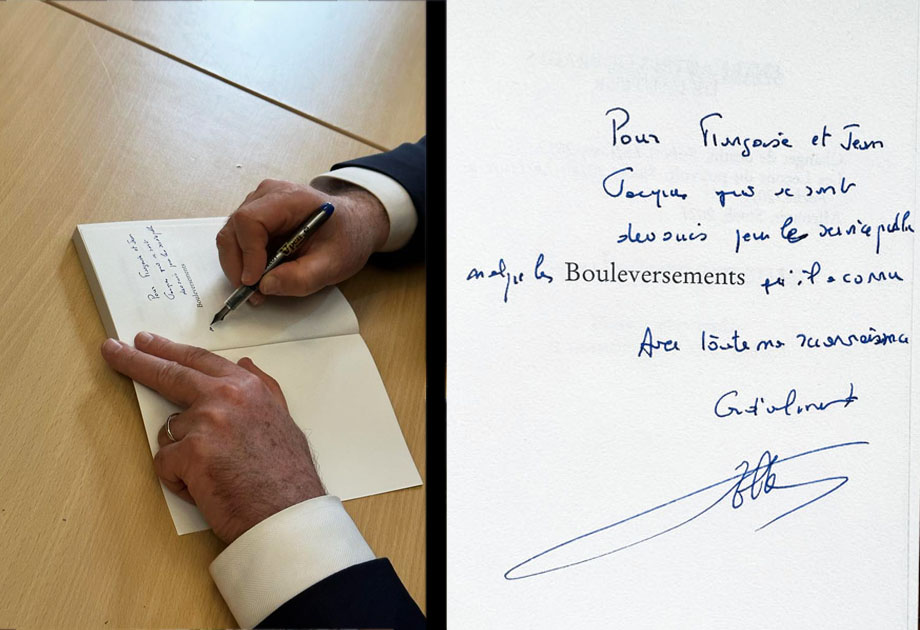 Pour Françoise et Jean
Jacques qui se sont
pour le service public
malgré les Bouleversements qu'il a connu
Avec toute ma reconnaissance
Cordialement